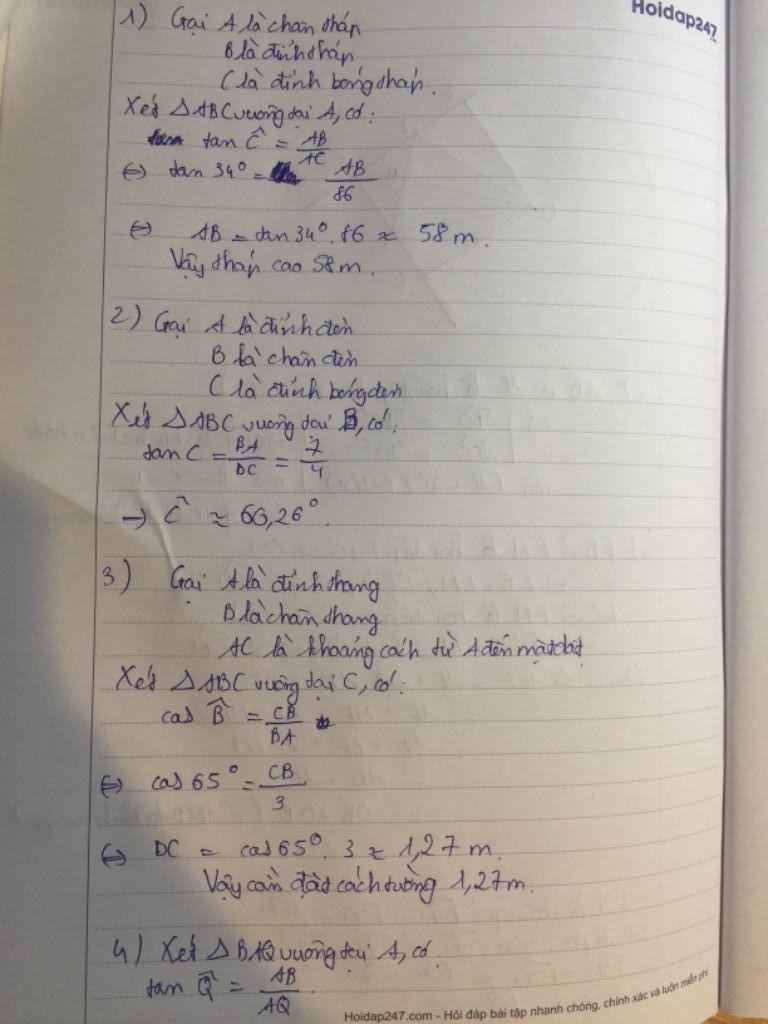 Hoidap247
1) Gọi A là chân tháp
B là đỉnh tháp
C là đỉnh bóng tháp.
Xét △ABC vuông tại A, có:
tan Ĉ = AB/AC
⇔ tan 34° = AB/86
⇔ AB = tan 34°. 86 ≈ 58 m.
Vậy tháp cao 58 m.
2) Gọi A là đỉnh đèn
B là chân đèn
C là đỉnh bóng đèn
Xét △ABC vuông tại B, có:
tan C = BA/BC = 7/4
→ Ĉ ≈ 60,26°.
3) Gọi A là đỉnh thang
B là chân thang
AC là khoảng cách từ A đến mặt đất
Xét △ABC vuông tại C, có:
cos B̂ = CB/BA
⇔ cos 65° = CB/3
⇔ BC = cos 65°. 3 ≈ 1,27 m.
Vậy cần đặt cách tường 1,27 m.
4) Xét △BAQ vuông tại A, có
tan Q̂ = AB/AQ
Hoidap247.com - Hỏi đáp bài tập nhanh chóng, chính xác và luôn miễn phí